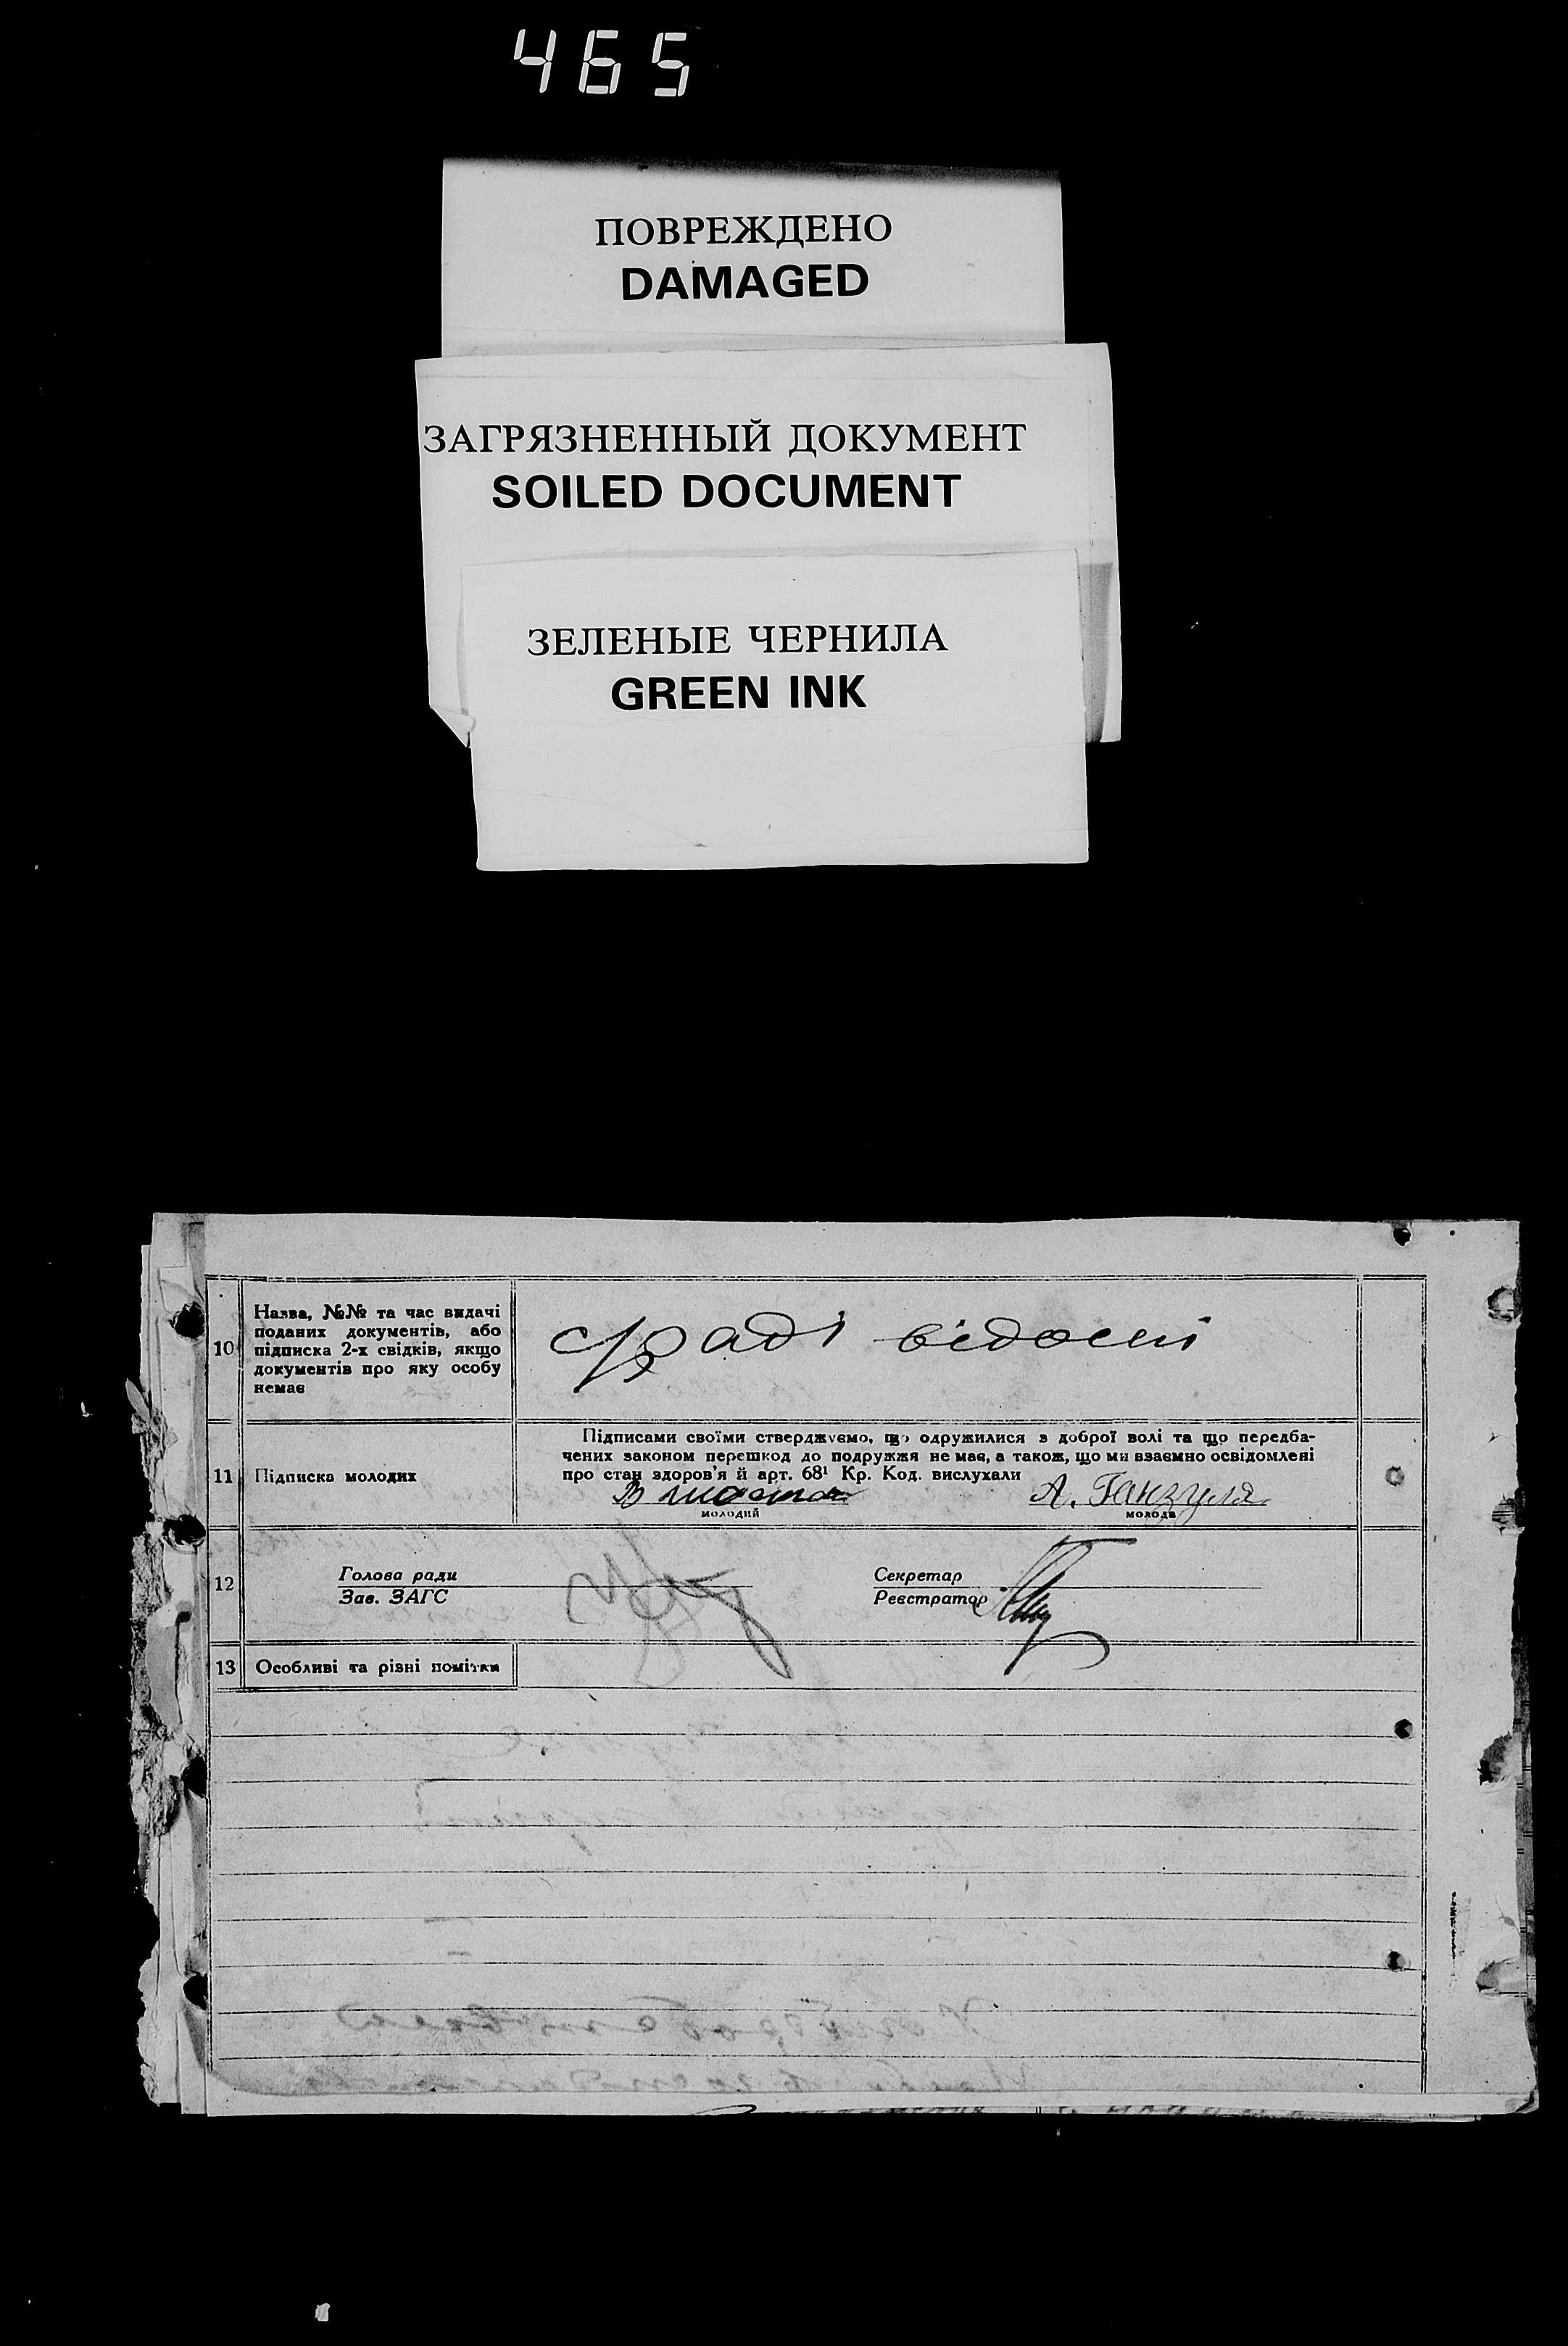 465
ПОВРЕЖДЕНО
DAMAGED
ЗАГРЯЗНЕННЫЙ ДОКУМЕНТ
SOILED DOCUMENT
ЗЕЛЕНЫЕ ЧЕРНИЛА
GREEN INK
10
Назва, №№ та час видачі
поданих документів, або
підписка 2-х свідків, якщо
документів про яку особу
немає
с/раді відомі
11
Підписка молодих
Підписами своїми стверджуємо, що одружилися з доброї волі та що передба-
чених законом перешкод до подружжя не має, а також, що ми взаємно освідомлені
про стан здоров'я й арт. 68¹ Кр. Код. вислухали
А. Ганзуля
молодий
молода
12
Голова ради
Зав. ЗАГС
Секретар
Реєстратор
13
Особливі та різні помітки